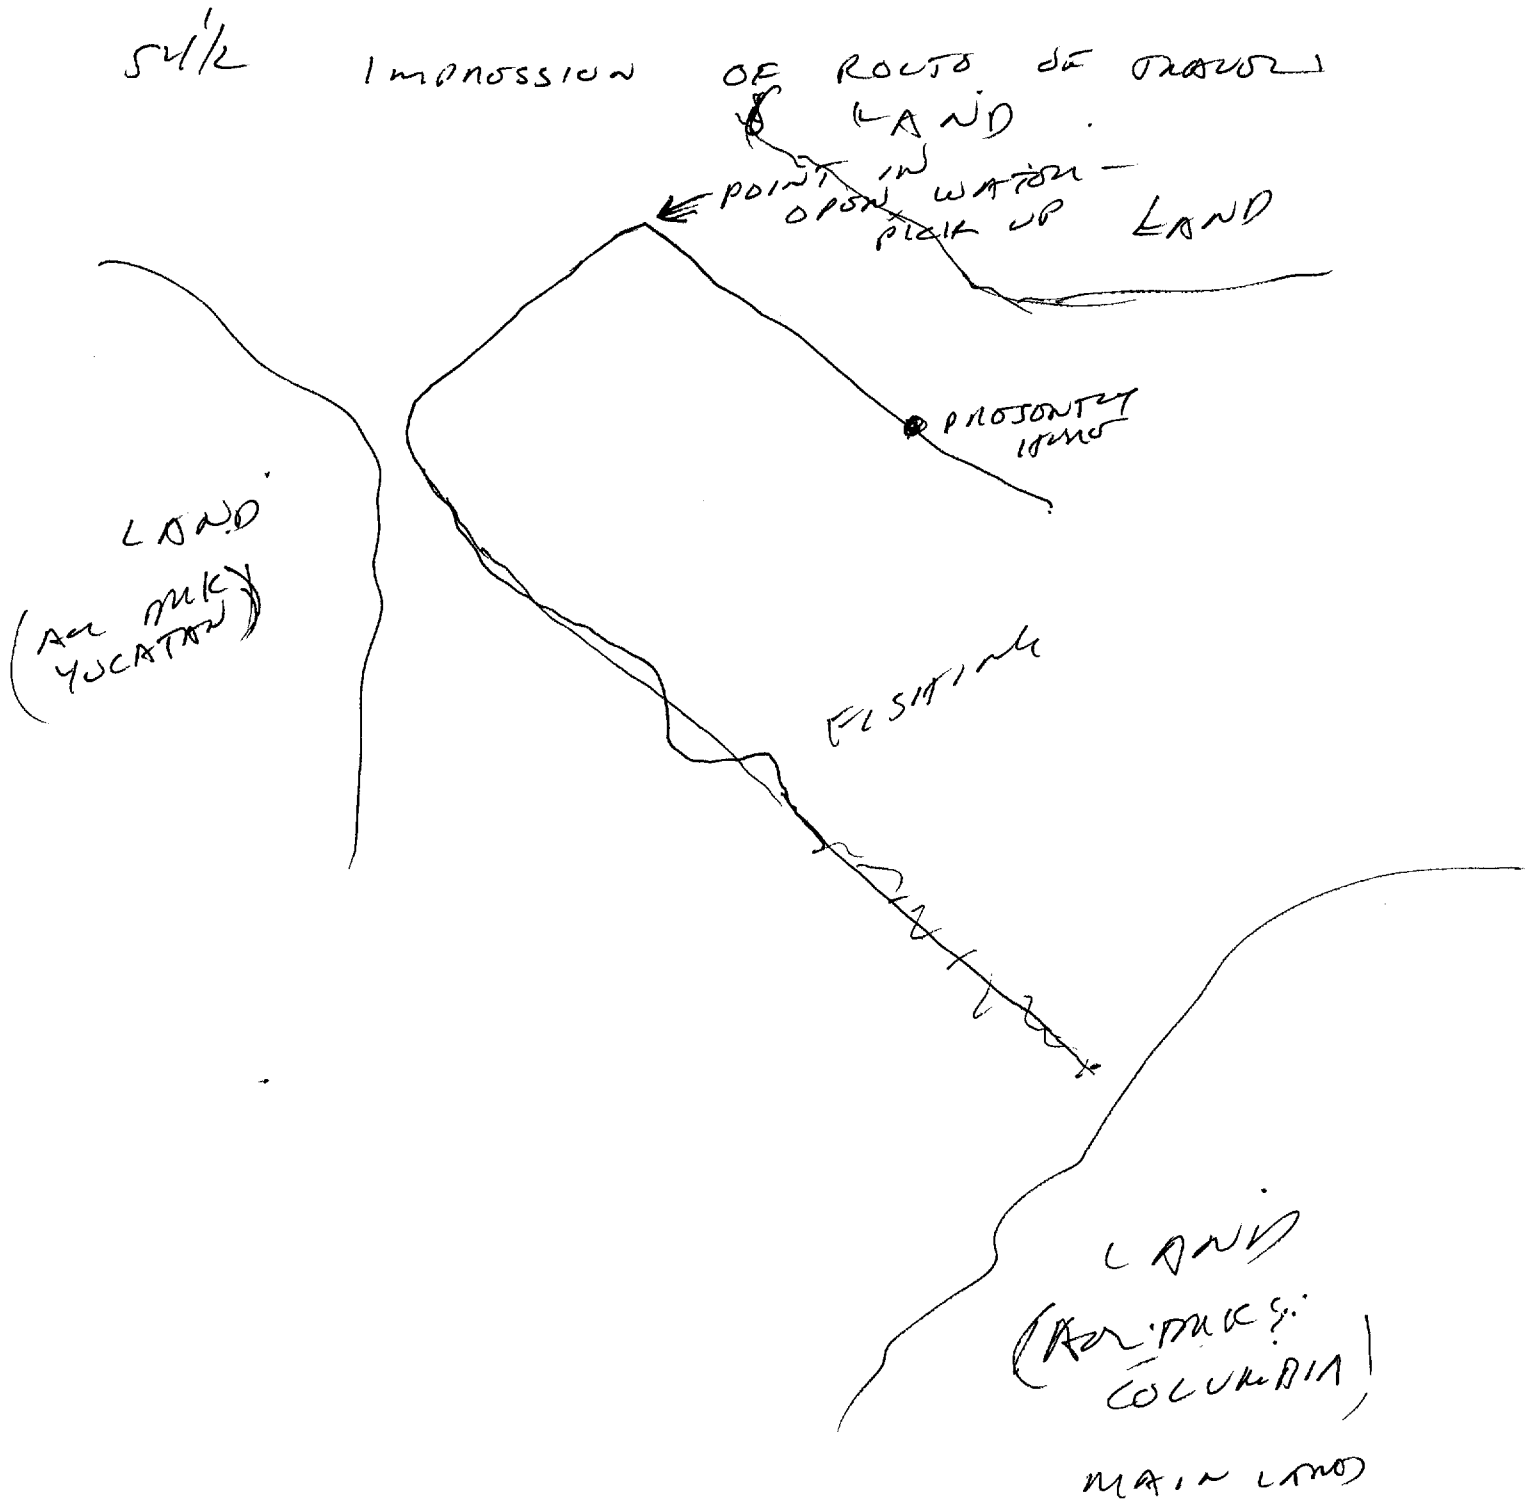 S4 1/2 IMPRESSION OF ROUTE OF TRAVEL
LAND
POINT IN
OPEN WATER —
PICK UP
LAND
PRESENTLY
HERE
LAND
(AOL MK
YUCATAN)
FISHING
LAND
(AOL: MKS:
COLUMBIA)
MAIN LAND